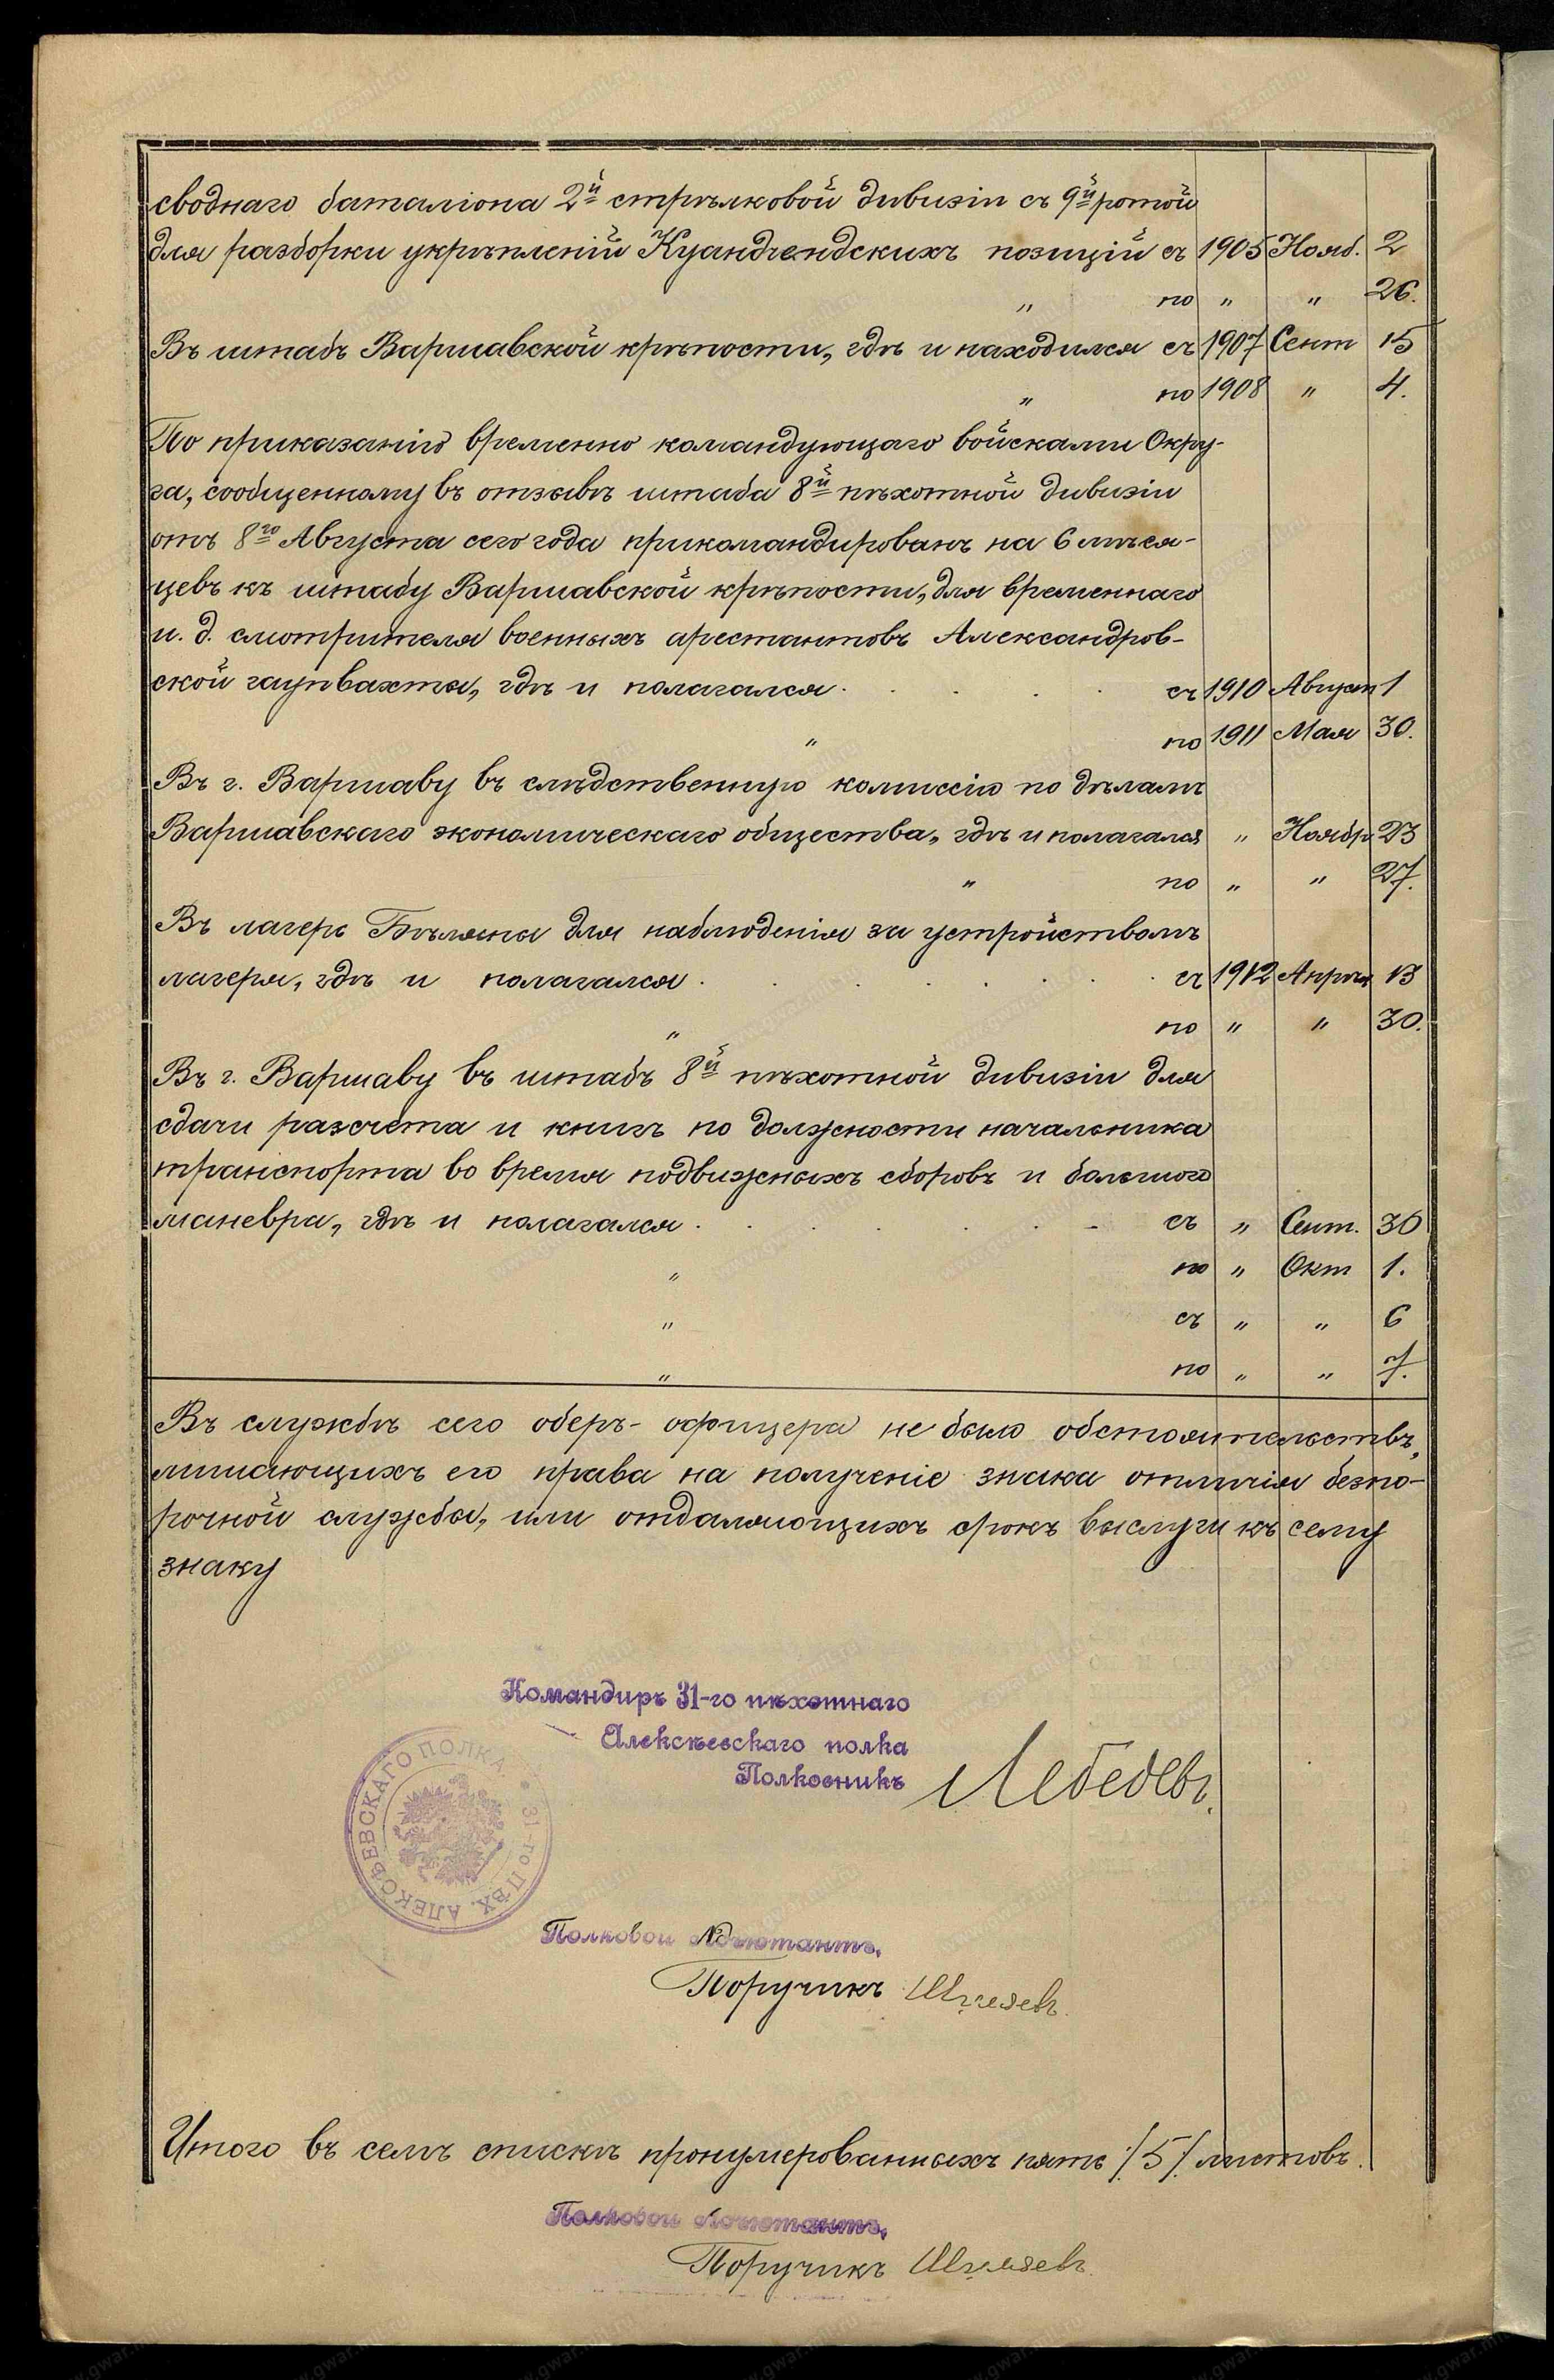 своднаго баталіона 2й стрѣлковой дивизіи съ 9й ротой
для разборки укрѣпленій Куандчендскихъ позицій съ 1905 Нояб. 2
" по " " 26.
Въ штабъ Варшавской крѣпости, гдѣ и находился съ 1907 Сент 15
" по 1908 " 4.
По приказанію временно командующаго войсками Окру-
га, сообщенному въ отзывѣ штаба 8й пѣхотной дивизіи
отъ 8го Августа сего года прикомандированъ на 6 мѣся-
цевъ къ штабу Варшавской крѣпости, для временнаго
и. д. смотрителя военныхъ арестантовъ Александров-
ской гауптвахты, гдѣ и полагался съ 1910 Август 1
" по 1911 Мая 30.
Въ г. Варшаву въ слѣдственную комиссію по дѣламъ
Варшавскаго экономическаго общества, гдѣ и полагался " Ноябр 23
" по " " 27.
Въ лагерь Бѣляны для наблюденія за устройствомъ
лагеря, гдѣ и полагался съ 1912 Апрѣля 13
" по " " 30.
Въ г. Варшаву въ штабъ 8й пѣхотной дивизіи для
сдачи разсчета и книгъ по должности начальника
транспорта во время подвижныхъ сборовъ и большого
маневра, гдѣ и полагался съ " Сент. 30
" по " Окт 1.
" съ " " 6
" по " " 7.
Въ службѣ сего оберъ-офицера не было обстоятельствъ,
лишающихъ его права на полученіе знака отличія безпо-
рочной службы, или отдаляющихъ срокъ выслуги къ сему
знаку
Командиръ 31-го пѣхотнаго
Алексѣевскаго полка
Полковникъ Лебедевъ.
31-го ПѢХ. АЛЕКСѢЕВСКАГО ПОЛКА
Полковой Адъютантъ,
Поручикъ
Итого въ семъ спискѣ пронумерованныхъ пять /5/ листовъ.
Полковой Адъютантъ,
Поручикъ